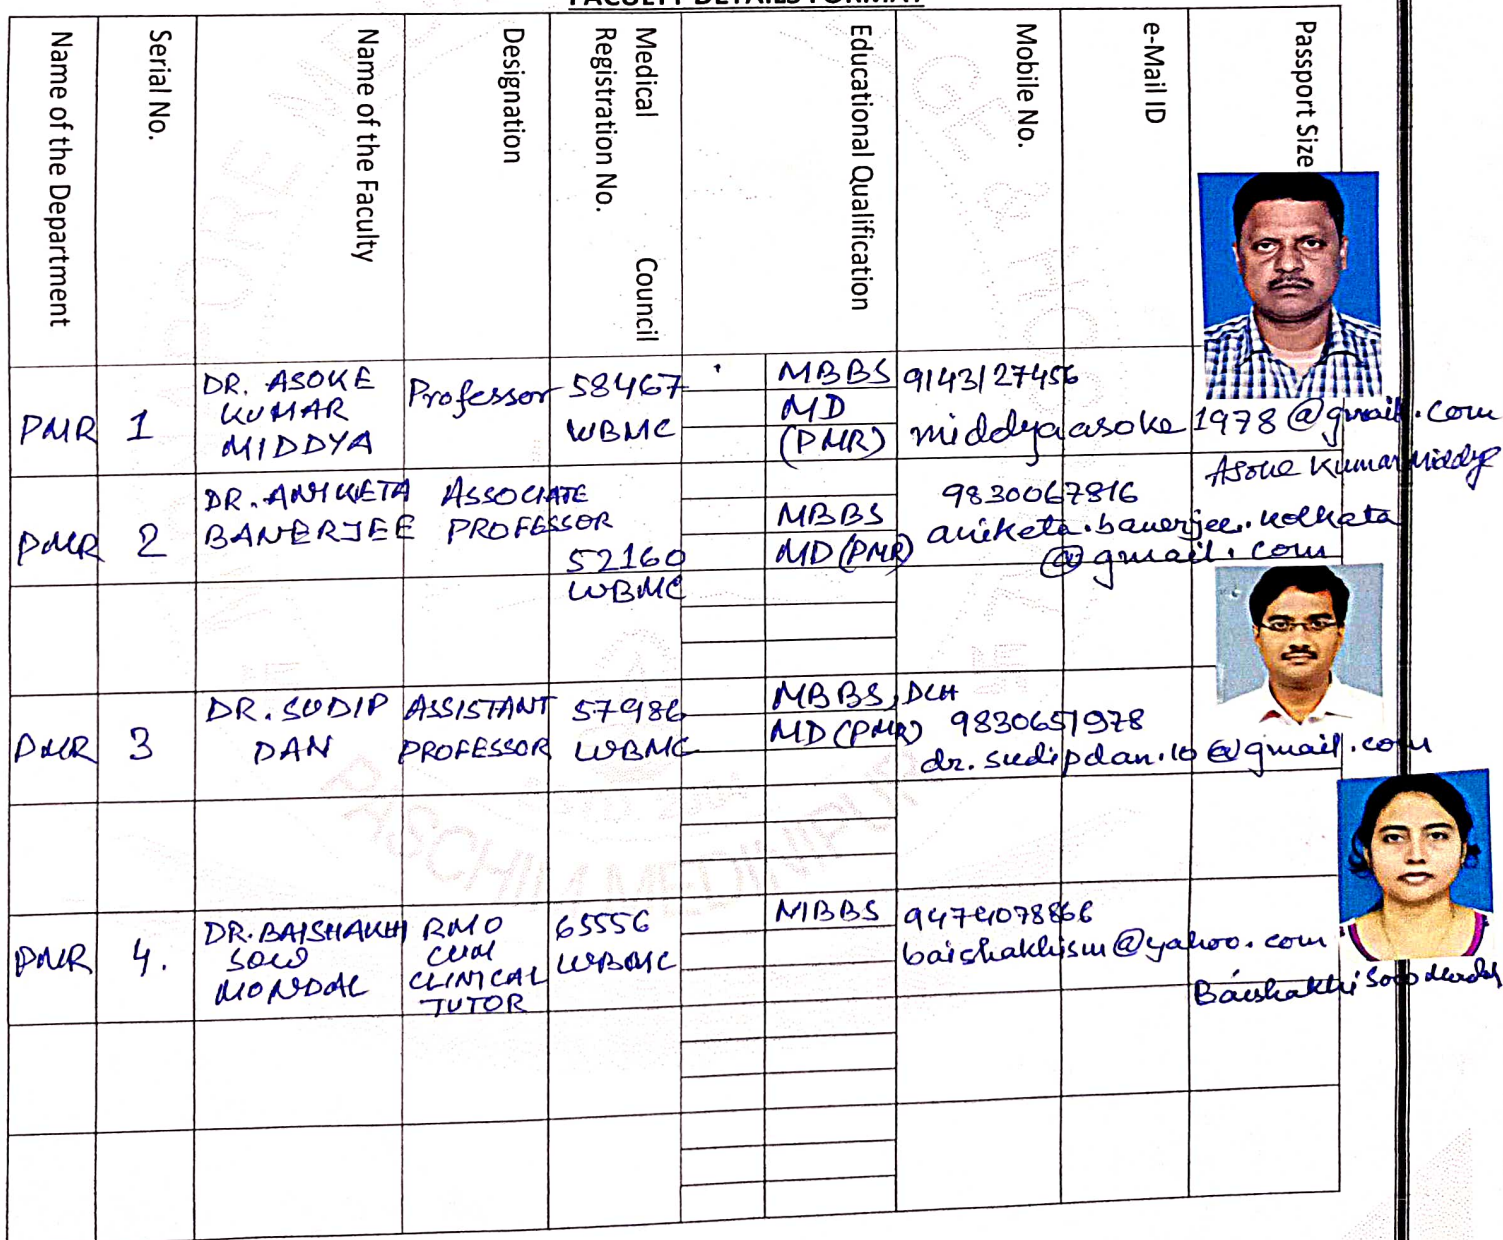 FACULTY DETAILS FORMAT
Name of the Department
Serial No.
Name of the Faculty
Designation
Medical Council
Registration No.
Educational Qualification
Mobile No.
e-Mail ID
Passport Size
PMR
1
DR. ASOKE
KUMAR
MIDDYA
Professor
58467
WBMC
MBBS
MD
(PMR)
9143127456
middyaasoke1978@gmail.com
Asoke Kumar Middya
PMR
2
DR. ANIKETA
BANERJEE
ASSOCIATE
PROFESSOR
52160
WBMC
MBBS
MD(PMR)
9830067816
aniketa.banerjee.kolkata
@gmail.com
PMR
3
DR. SUDIP
DAN
ASSISTANT
PROFESSOR
57986
WBMC
MBBS, DCH
MD(PMR)
9830651978
dr.sudipdan.10@gmail.com
PMR
4.
DR. BAISHAKHI
SOW
MONDAL
RMO
CUM
CLINICAL
TUTOR
65556
WBMC
MBBS
9474078866
baishakhism@yahoo.com
Baishakhi Sow Mondal
PASCHIM MEDINIPUR